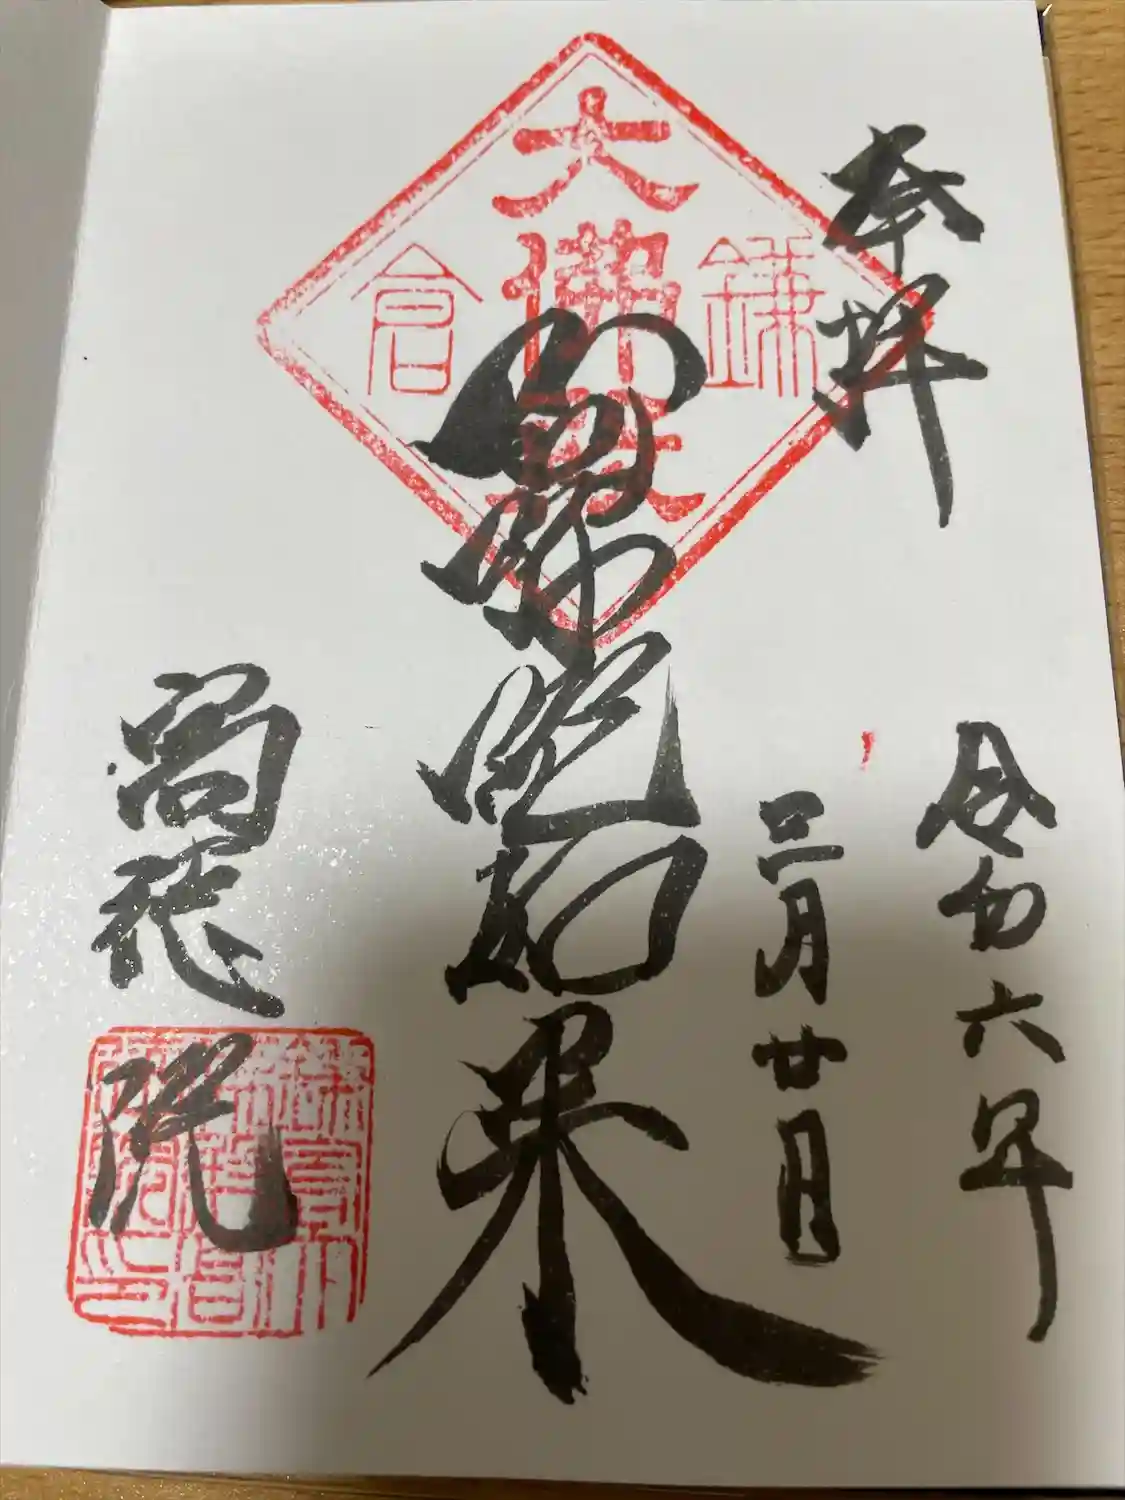 奉拝
令和六年
三月廿日
鎌倉
大佛殿
阿弥陀如来
高徳院